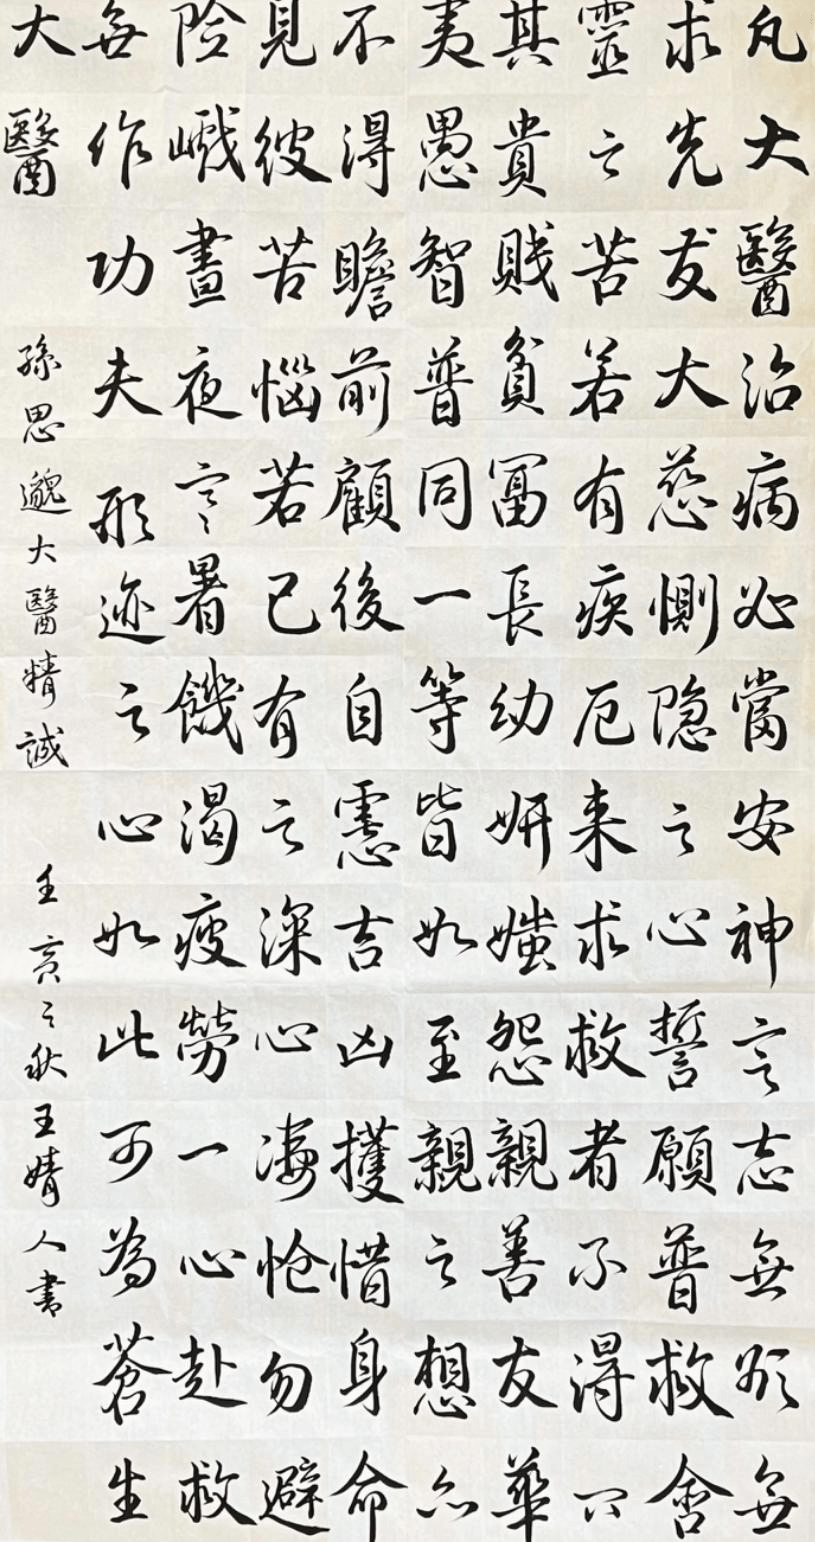 凡大醫治病必當安神定志無欲無
求先发大慈惻隐之心誓願普救含
靈之苦若有疾厄来求救者不得问
其貴賤貧冨長幼妍媸怨親善友華
夷愚智普同一等皆如至親之想亦
不得瞻前顧後自慮吉凶護惜身命
見彼苦惱若己有之深心凄怆勿避
险巇晝夜寒暑饑渴疲勞一心赴救
無作功夫形迹之心如此可為蒼生
大醫
孫思邈大醫精誠 壬寅之秋王婧人書